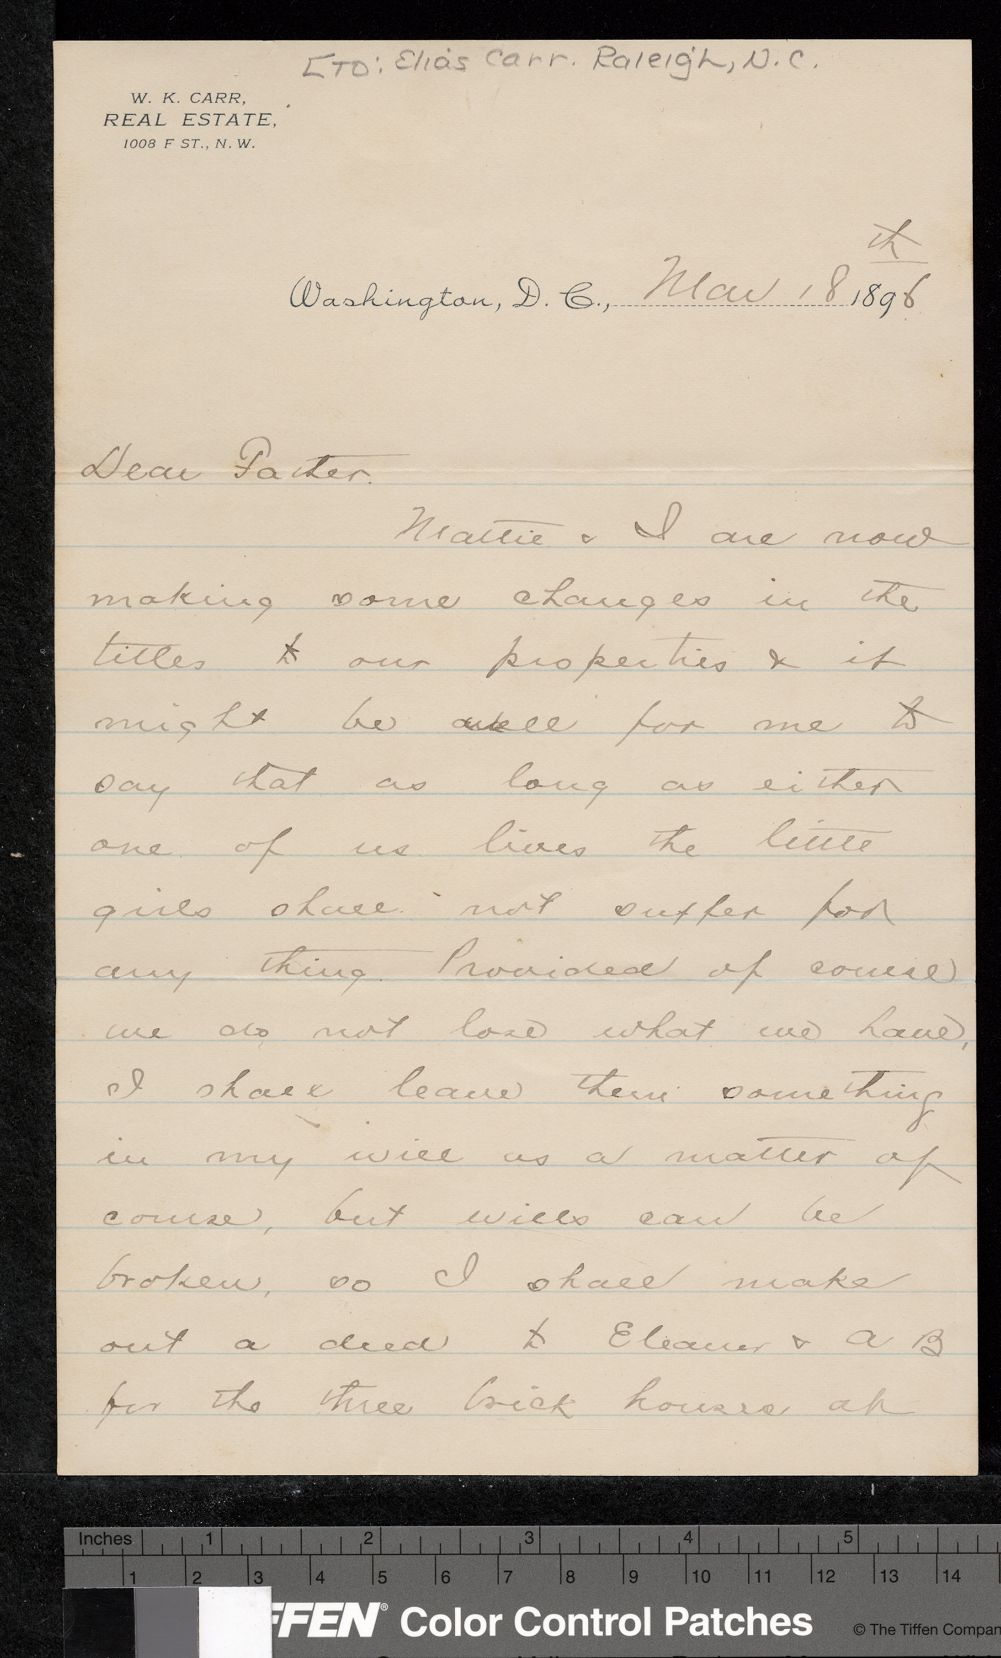 [TO: Elias Carr. Raleigh, N.C.
W. K. CARR,
REAL ESTATE,
1008 F ST., N. W.
Washington, D. C., Mar 18th 1896
Dear Father.
Mattie & I are now
making some changes in the
titles to our properties & it
might be well for me to
say that as long as either
one of us lives the little
girls shall not suffer for
any thing. Provided of course
we do not lose what we have,
I shall leave them something
in my will as a matter of
course, but wills can be
broken, so I shall make
out a deed to Eleanor & A B
for the three brick houses at
Inches 1 2 3 4 5
1 2 3 4 5 6 7 8 9 10 11 12 13 14
FFEN® Color Control Patches © The Tiffen Compan